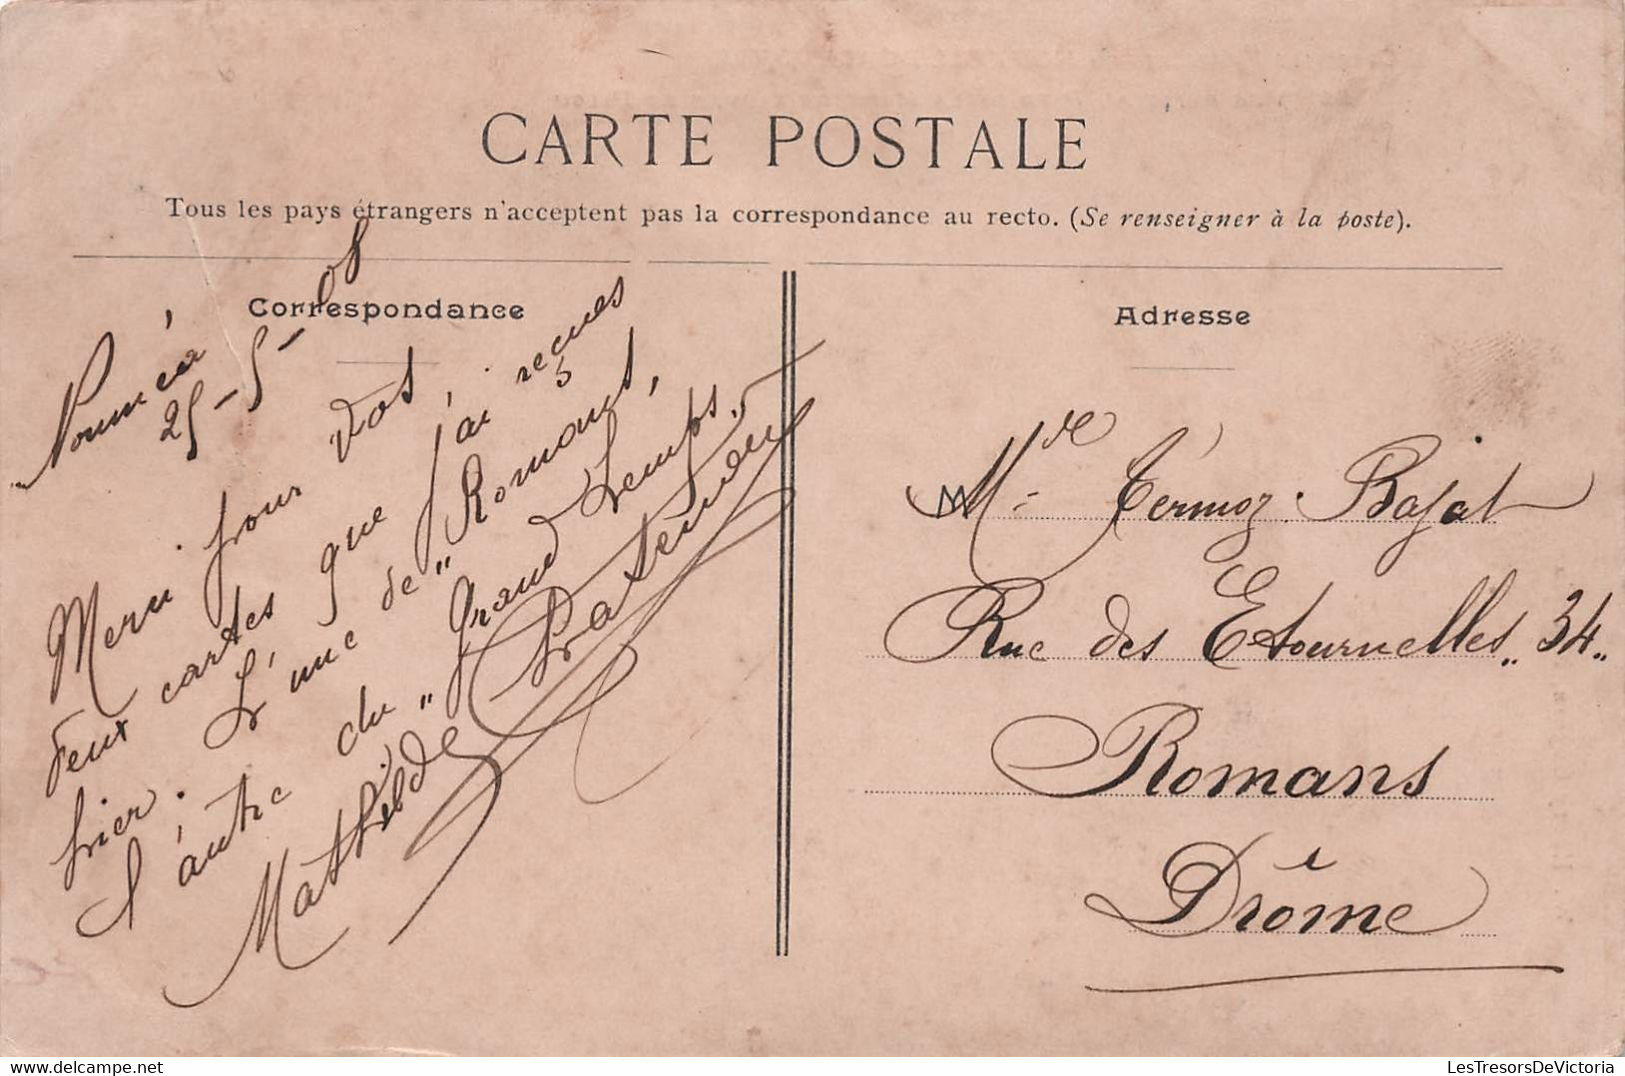 CARTE POSTALE
Tous les pays étrangers n'acceptent pas la correspondance au recto. (Se renseigner à la poste).
Correspondance
Nouméa
25-5-08
Merci pour vos
deux cartes que j'ai reçues
hier. L'une de "Romans,
l'autre du "Grand Lemps.
Mathilde
Adresse
Mlle Termoz. Bajat
Rue des Etournelles "34"
Romans
Drôme
LesTresorsDeVictoria